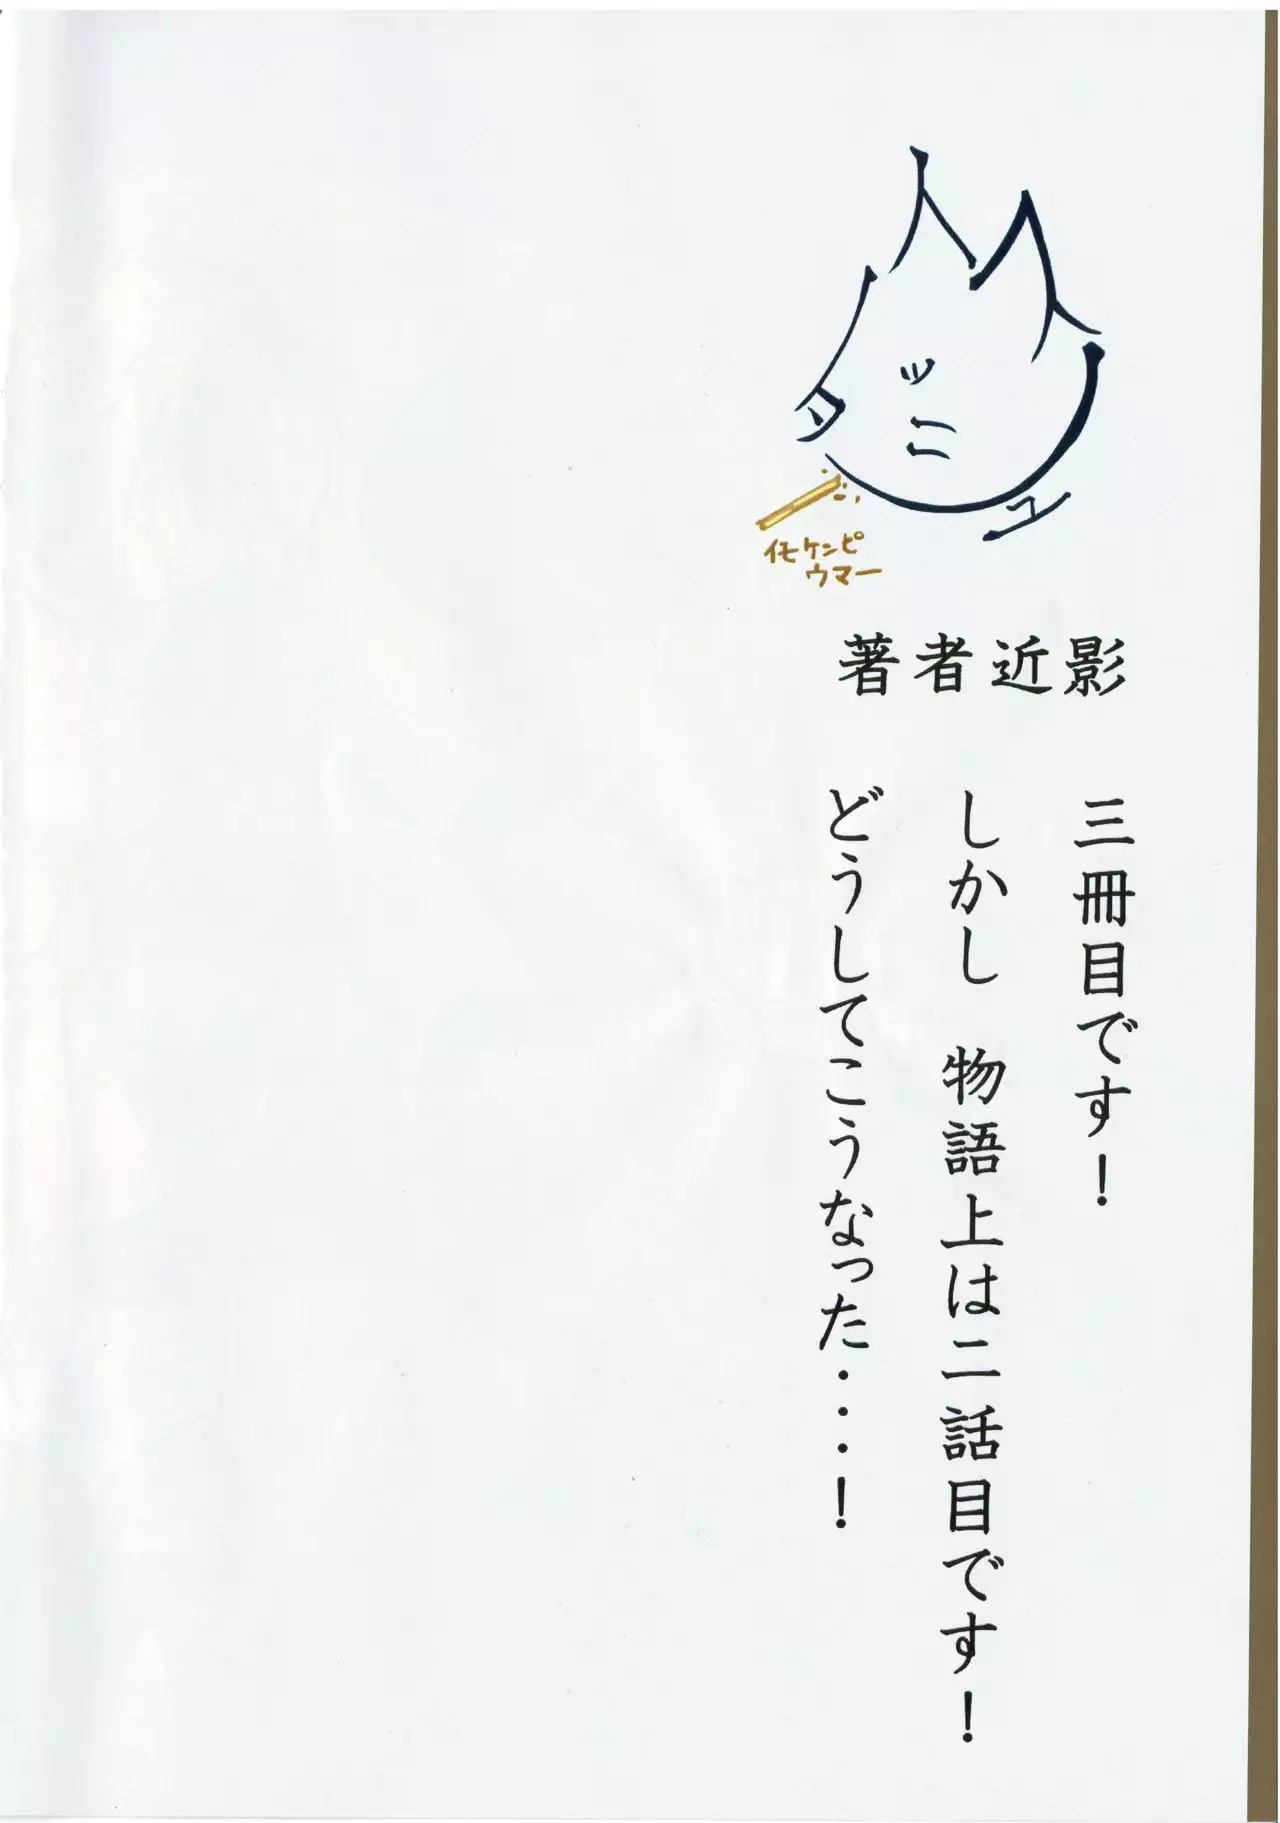 イモケンピ
ウマー
著者近影
三冊目です！
しかし　物語上は二話目です！
どうしてこうなった・・・！